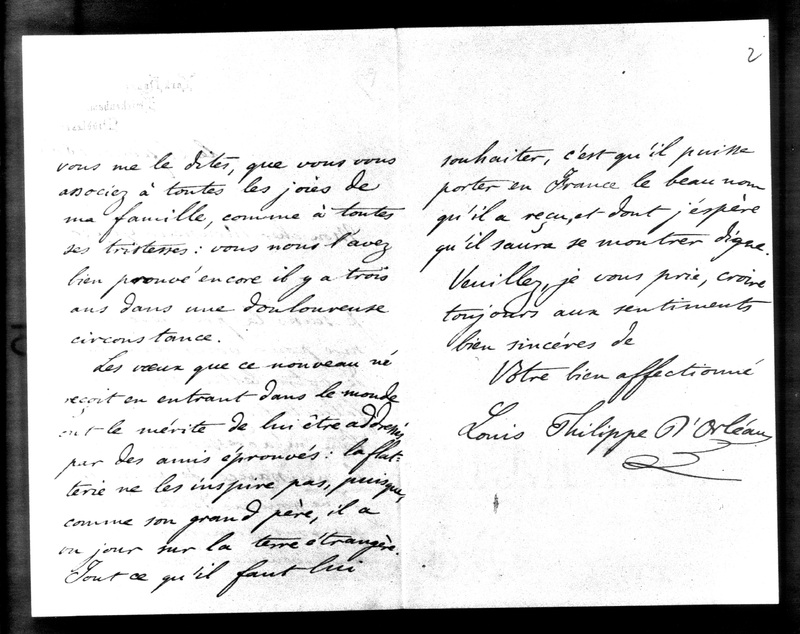 2
vous me le dites, que vous vous
associez à toutes les joies de
ma famille, comme à toutes
ses tristesses : vous nous l'avez
bien prouvé encore il y a trois
ans dans une douloureuse
circonstance.
Les vœux que ce nouveau né
reçoit en entrant dans le monde
ont le mérite de lui être addressés
par des amis éprouvés : la flat-
terie ne les inspire pas, puisque,
comme son grand père, il a
vu jour sur la terre étrangère.
Tout ce qu'il faut lui
souhaiter, c'est qu'il puisse
porter en France le beau nom
qu'il a reçu, et dont j'espère
qu'il saura se montrer digne.
Veuillez, je vous prie, croire
toujours aux sentiments
bien sincères de
Votre bien affectionné
Louis Philippe D'Orléans